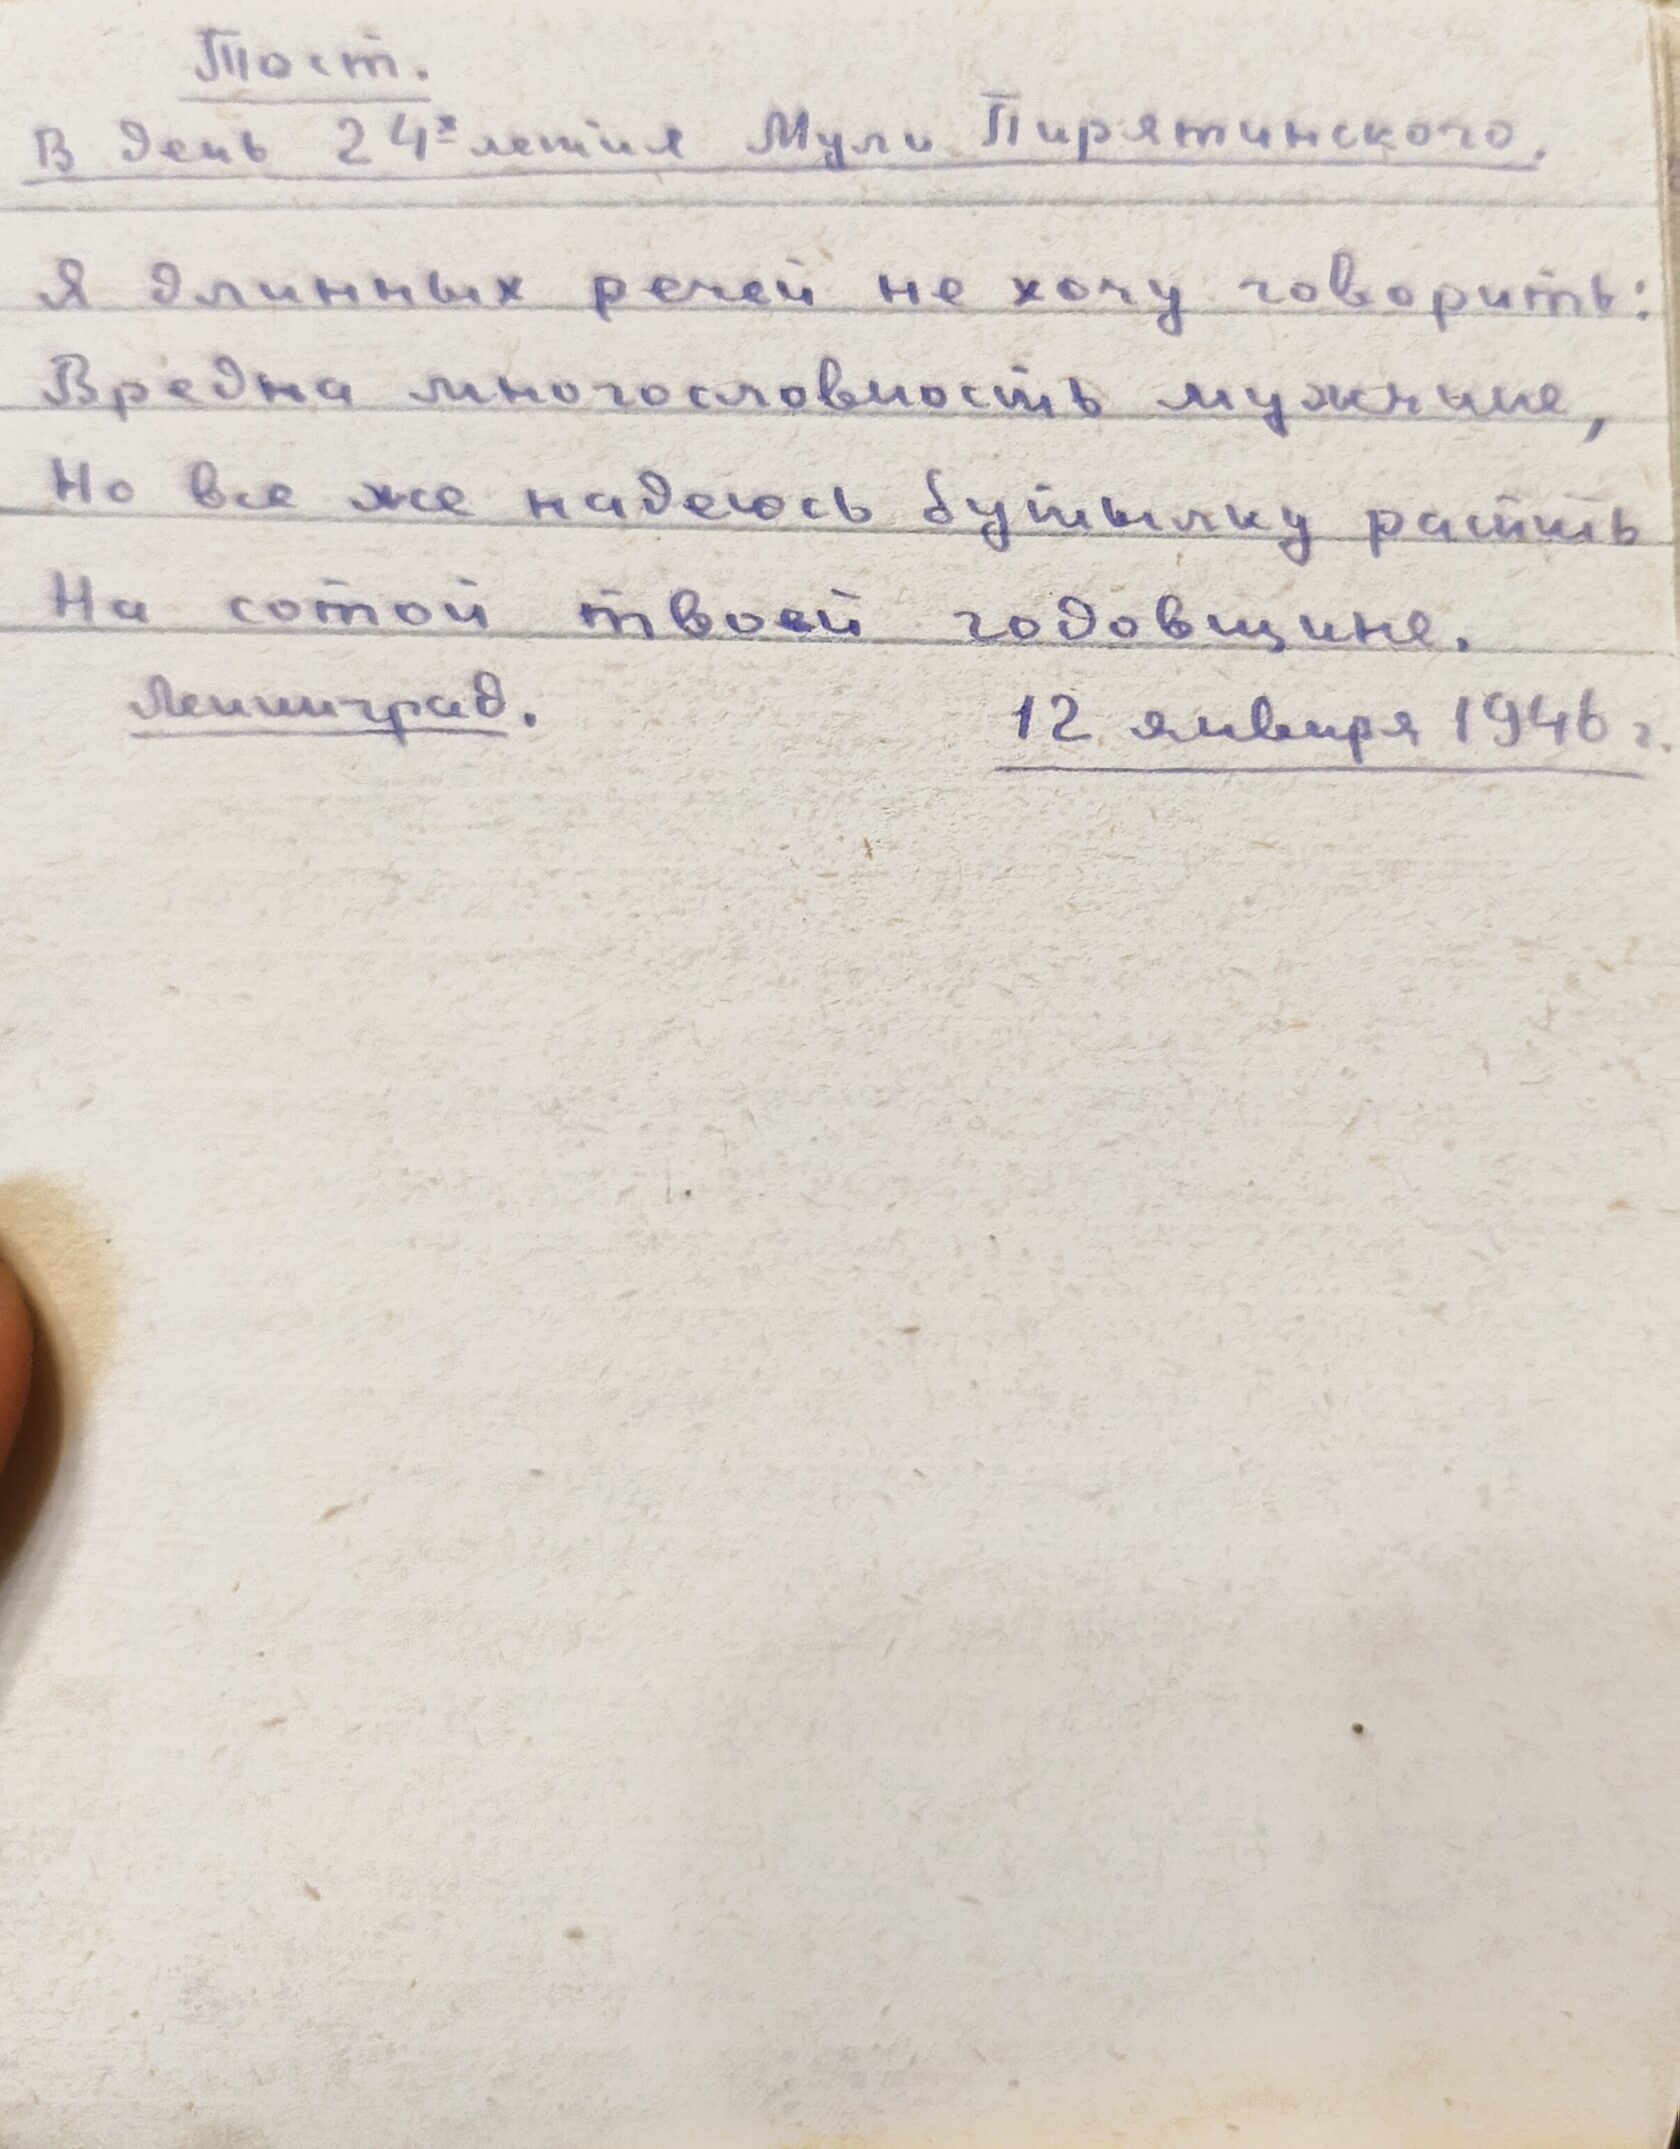 Тост.
В день 24х летия Мули Пирятинского.
Я длинных речей не хочу говорить:
Вредна многословность мужчине,
Но все же надеюсь бутылку распить
На сотой твоей годовщине.
Ленинград.
12 января 1946 г.